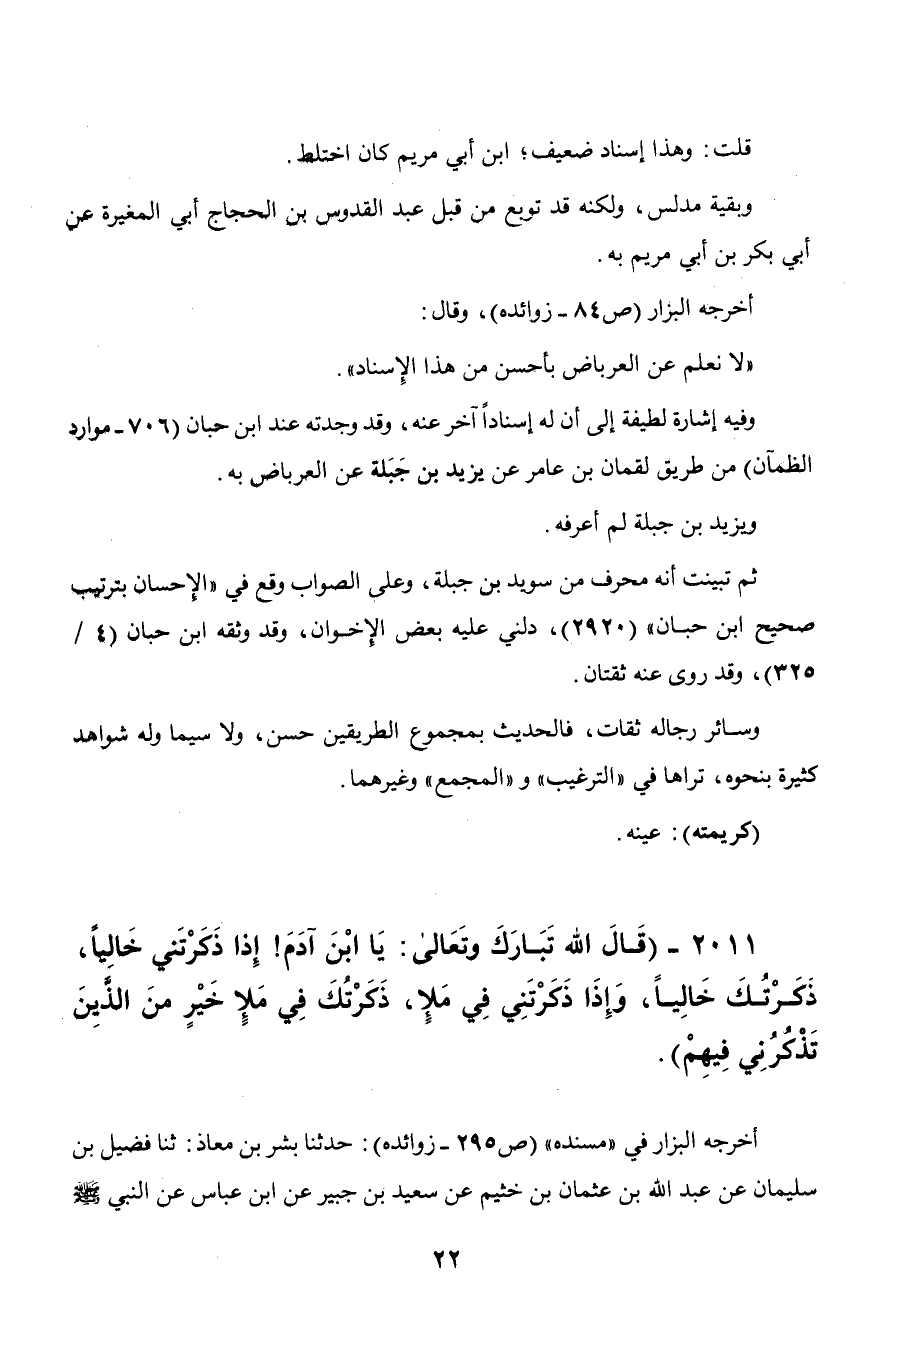 قلت: وهذا إسناد ضعيف؛ ابن أبي مريم كان اختلط.
وبقية مدلس، ولكنه قد توبع من قبل عبد القدوس بن الحجاج أبي المغيرة عن
أبي بكر بن أبي مريم به.
أخرجه البزار (ص٨٤ - زوائده)، وقال:
«لا نعلم عن العرباض بأحسن من هذا الإسناد».
وفيه إشارة لطيفة إلى أن له إسناداً آخر عنه، وقد وجدته عند ابن حبان (٧٠٦ - موارد
الظمآن) من طريق لقمان بن عامر عن يزيد بن جَبَلة عن العرباض به.
ويزيد بن جبلة لم أعرفه.
ثم تبينت أنه محرف من سويد بن جبلة، وعلى الصواب وقع في «الإحسان بترتيب
صحيح ابن حبان» (٢٩٢٠)، دلني عليه بعض الإخوان، وقد وثقه ابن حبان (٤ /
٣٢٥)، وقد روى عنه ثقتان.
وسائر رجاله ثقات، فالحديث بمجموع الطريقين حسن، ولا سيما وله شواهد
كثيرة بنحوه، تراها في «الترغيب» و «المجمع» وغيرهما.
(كريمته): عينه.
٢٠١١ - (قَالَ الله تَبَارَكَ وتَعَالىٰ: يَا ابْنَ آدَمَ! إِذا ذَكَرْتَني خَالِياً،
ذَكَرْتُكَ خَالِياً، وَإِذَا ذَكَرْتَنِي فِي مَلإٍ، ذَكَرْتُكَ فِي مَلإٍ خَيْرٍ منَ الذَّينَ
تَذْكُرُنِي فِيهِمْ).
أخرجه البزار في «مسنده» (ص٢٩٥ - زوائده): حدثنا بشر بن معاذ: ثنا فضيل بن
سليمان عن عبد الله بن عثمان بن خثيم عن سعيد بن جبير عن ابن عباس عن النبي ﷺ
٢٢